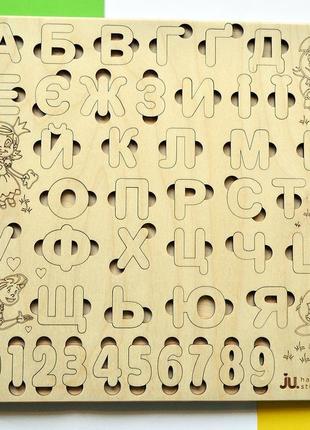 А Б В Г Ґ Д
Е Є Ж З И І Ї
Й К Л М
О П Р С Т
У Ф Х Ц Ч
Щ Ь Ю Я
0123456789
ju.